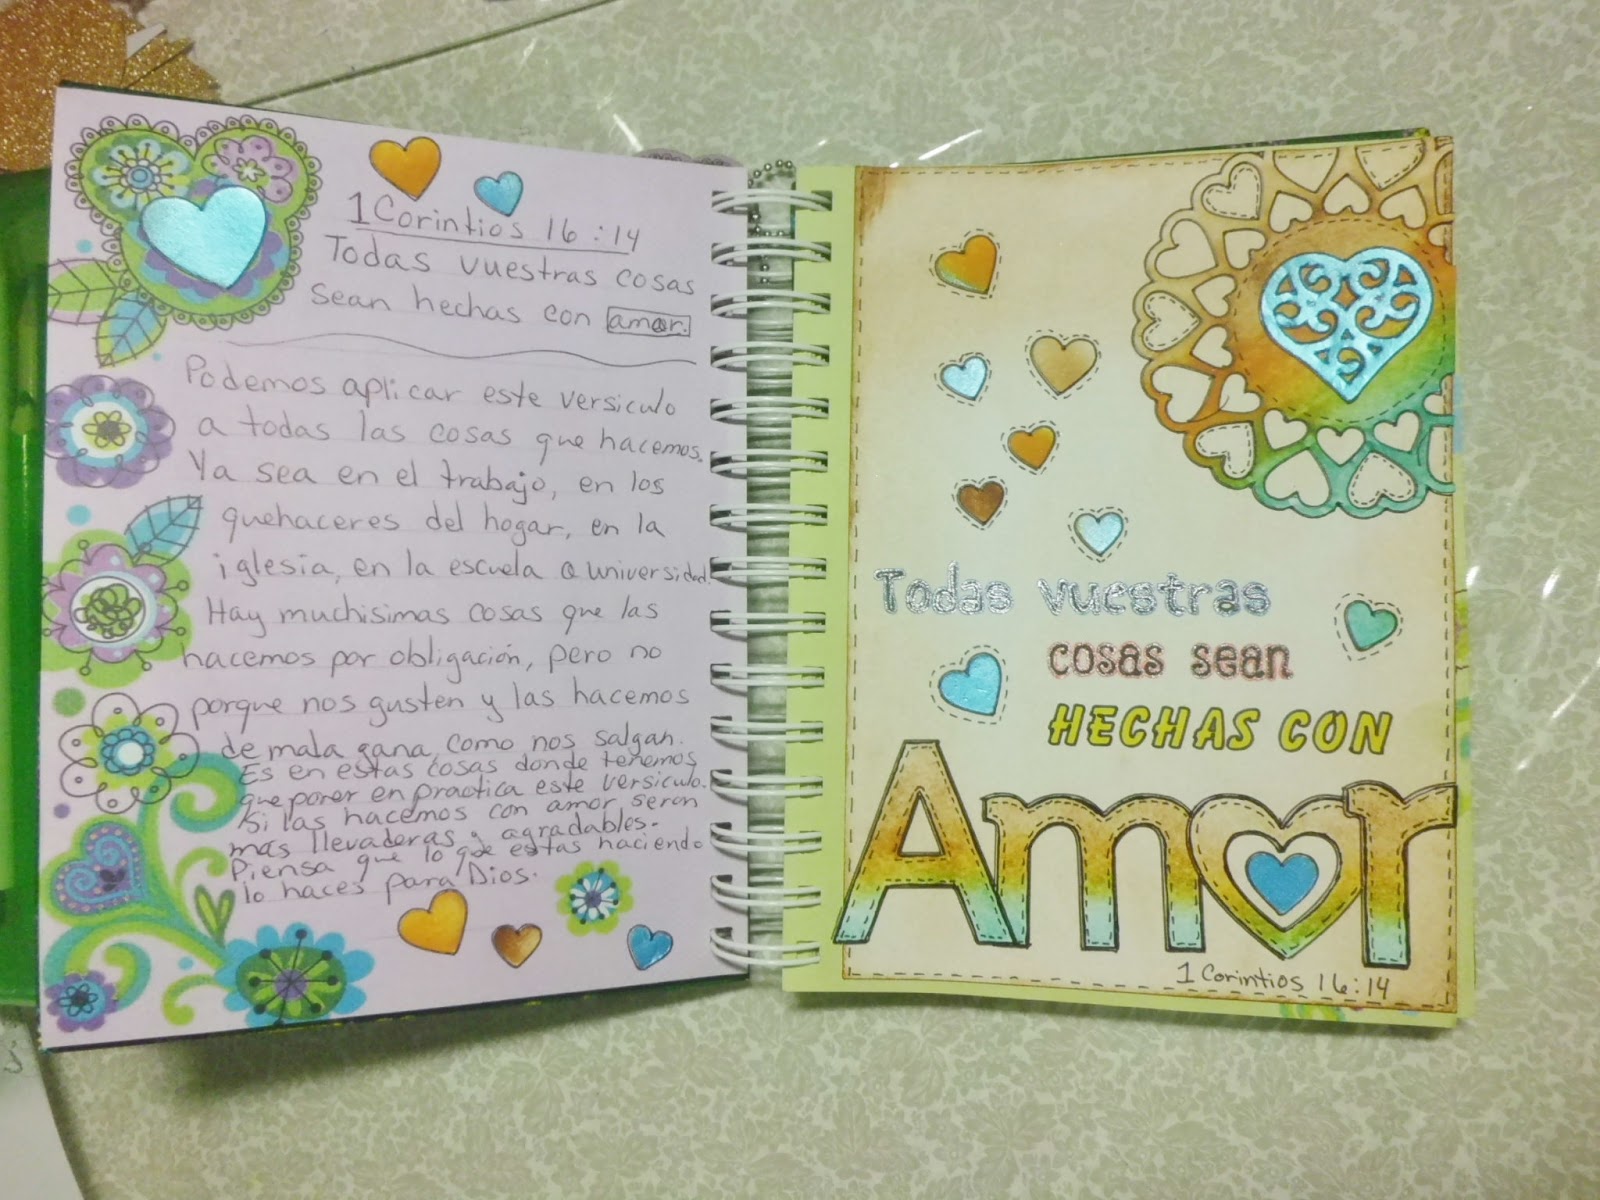 1 Corintios 16:14
Todas vuestras cosas
sean hechas con amor.
Podemos aplicar este versiculo
a todas las cosas que hacemos.
Ya sea en el trabajo, en los
quehaceres del hogar, en la
iglesia, en la escuela o universidad.
Hay muchisimas cosas que las
hacemos por obligación, pero no
porque nos gusten y las hacemos
de mala gana, como nos salgan.
Es en estas cosas donde tenemos
que poner en practica este versiculo.
Si las hacemos con amor seran
mas llevaderas y agradables.
Piensa que lo que estas haciendo
lo haces para Dios.
Todas vuestras
cosas sean
HECHAS CON
Amor
1 Corintios 16:14